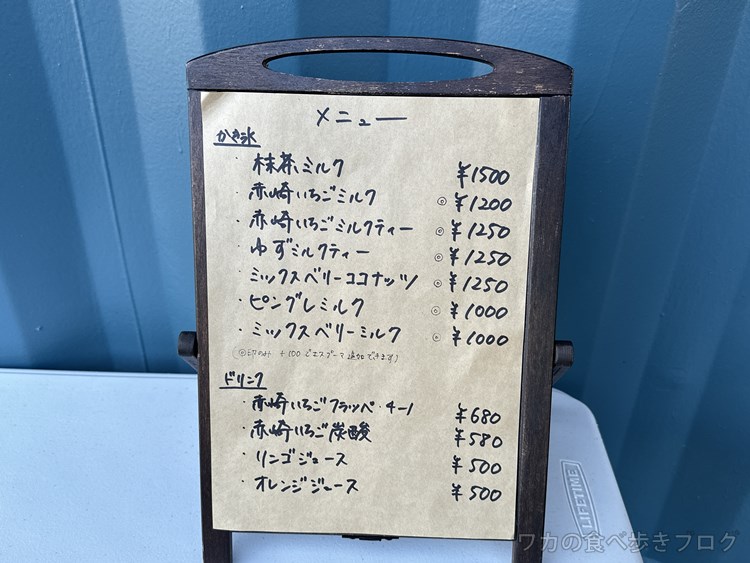 メニュー
かき氷
・抹茶ミルク ¥1500
・赤崎いちごミルク ◎¥1200
・赤崎いちごミルクティー ◎¥1250
・ゆずミルクティー ◎¥1250
・ミックスベリーココナッツ ◎¥1250
・ピングレミルク ◎¥1000
・ミックスベリーミルク ◎¥1000
(◎印のみ +100でエスプーマ追加できます)
ドリンク
・赤崎いちごフラッペ ¥680
・赤崎いちご炭酸 ¥580
・リンゴジュース ¥500
・オレンジジュース ¥500
LIFETIME
ワカの食べ歩きブログ